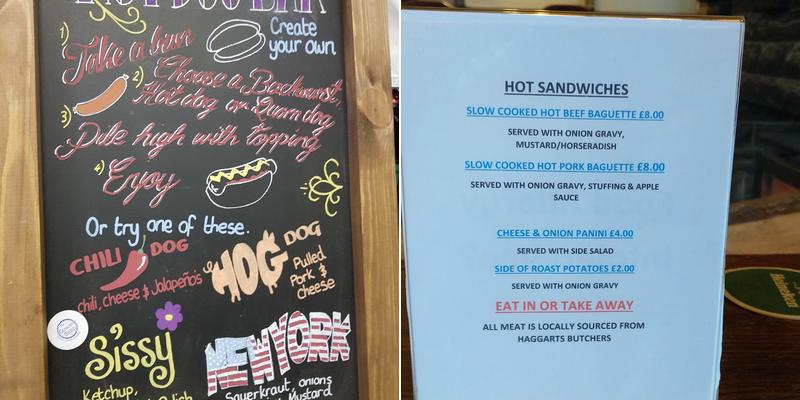 HOT DOG BAR
1) Take a bun
Create
your own
2) Choose a Bockwurst,
Hot dog or Quorn dog
3) Pile high with topping
4) Enjoy
Or try one of these.
CHILI DOG
chili, cheese & Jalapeño's
HOG DOG
Pulled
Pork &
Cheese
Sissy
Ketchup,
NEWYORK
Sauerkraut, onions
Mustard
HOT SANDWICHES
SLOW COOKED HOT BEEF BAGUETTE £8.00
SERVED WITH ONION GRAVY,
MUSTARD/HORSERADISH
SLOW COOKED HOT PORK BAGUETTE £8.00
SERVED WITH ONION GRAVY, STUFFING & APPLE
SAUCE
CHEESE & ONION PANINI £4.00
SERVED WITH SIDE SALAD
SIDE OF ROAST POTATOES £2.00
SERVED WITH ONION GRAVY
EAT IN OR TAKE AWAY
ALL MEAT IS LOCALLY SOURCED FROM
HAGGARTS BUTCHERS
Heineken